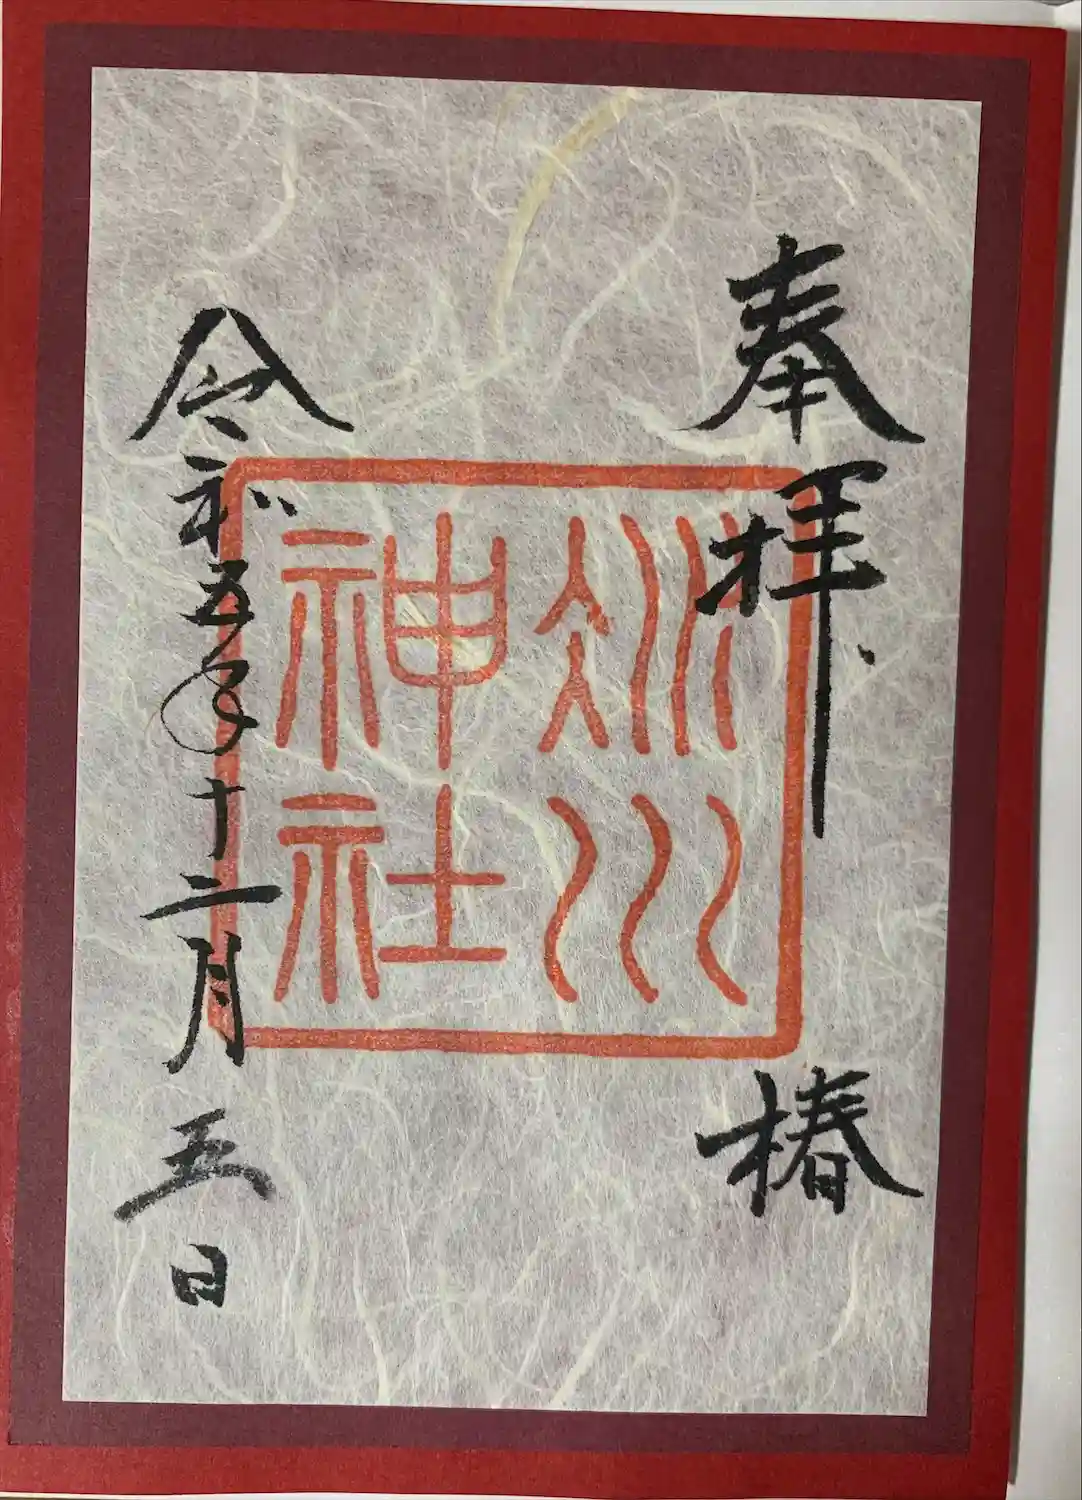 奉拝 椿
冰川
神社
令和五年十二月五日